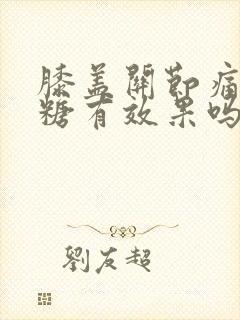 膝盖關節痛
糖有效果吗
劉友超